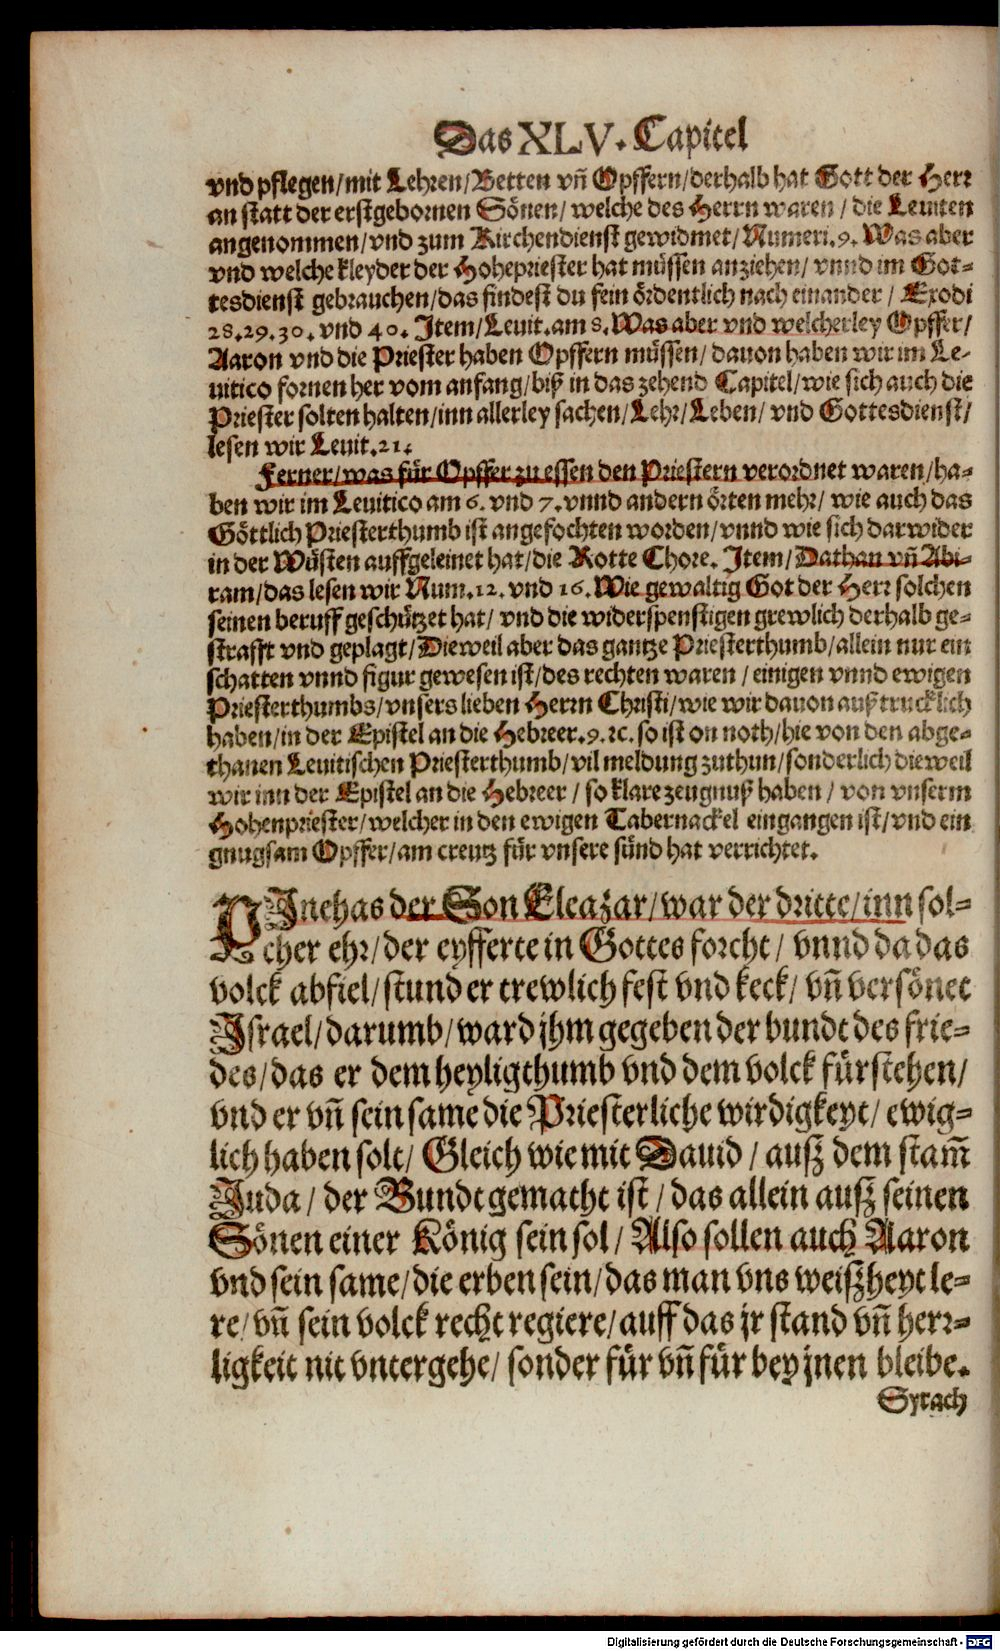 Das XLV. Capitel
vnd pflegen/mit Lehren/Betten vñ Opffern/derhalb hat Gott der Herr
an statt der erstgebornen Sönen/ welche des Herrn waren / die Leuiten
angenommen/vnd zum Kirchendienst gewidmet/ Numeri. 9. Was aber
vnd welche kleyder der Hohepriester hat müssen anziehen/ vnnd im Got-
tesdienst gebrauchen/das findest du fein ördentlich nach einander / Exodi
28.29.30. vnd 40. Item/Leuit.am 8. Was aber vnd welcherley Opffer/
Aaron vnd die Priester haben Opffern müssen/ dauon haben wir im Le-
uitico fornen her vom anfang/biß in das zehend Capitel/wie sich auch die
Priester solten halten/inn allerley sachen/Lehr/Leben/ vnd Gottesdienst/
lesen wir Leuit.21.
Ferner/was für Opffer zu essen den Priestern verordnet waren/ha-
ben wir im Leuitico am 6. vnd 7. vnnd andern örten mehr/ wie auch das
Göttlich Priesterthumb ist angefochten worden/vnnd wie sich darwider
in der Wüsten auffgeleinet hat/die Rotte Chore. Item/Dathan vñ Abi-
ram/das lesen wir Num.12. vnd 16. Wie gewaltig Got der Herr solchen
seinen beruff geschützet hat/ vnd die widerspenstigen grewlich derhalb ge-
strafft vnd geplagt/Dieweil aber das gantze Priesterthumb/allein nur ein
schatten vnnd figur gewesen ist/des rechten waren / einigen vnnd ewigen
Priesterthumbs/vnsers lieben Herrn Christi/wie wir dauon außtrucklich
haben/in der Epistel an die Hebreer.9.ꝛc. so ist on noth/hie von den abge-
thanen Leuitischen Priesterthumb/vil meldung zuthun/sonderlich dieweil
wir inn der Epistel an die Hebreer / so klare zeugnuß haben / von vnserm
Hohenpriester/welcher in den ewigen Tabernackel eingangen ist/vnd ein
gnugsam Opffer/am creutz für vnsere sünd hat verrichtet.
PInehas der Son Eleazar/war der dritte/inn sol-
cher ehr/der eyfferte in Gottes forcht/ vnnd da das
volck abfiel/stund er trewlich fest vnd keck/ vñ versönet
Israel/darumb/ward jhm gegeben der bundt des frie-
des/das er dem heyligthumb vnd dem volck fürstehen/
vnd er vñ sein same die Priesterliche wirdigkeyt/ ewig-
lich haben solt/ Gleich wie mit Dauid / ausz dem stam̃
Juda / der Bundt gemacht ist / das allein ausz seinen
Sönen einer König sein sol / Also sollen auch Aaron
vnd sein same/die erben sein/das man vns weiszheyt le-
re/ vñ sein volck recht regiere/auff das jr stand vñ herr-
ligkeit nit vntergehe/ sonder für vñ für bey jnen bleibe.
Syrach
Digitalisierung gefördert durch die Deutsche Forschungsgemeinschaft - DFG